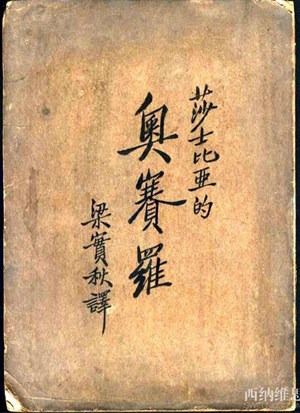 莎士比亚的
奥賽羅
梁實秋譯
西纳维思